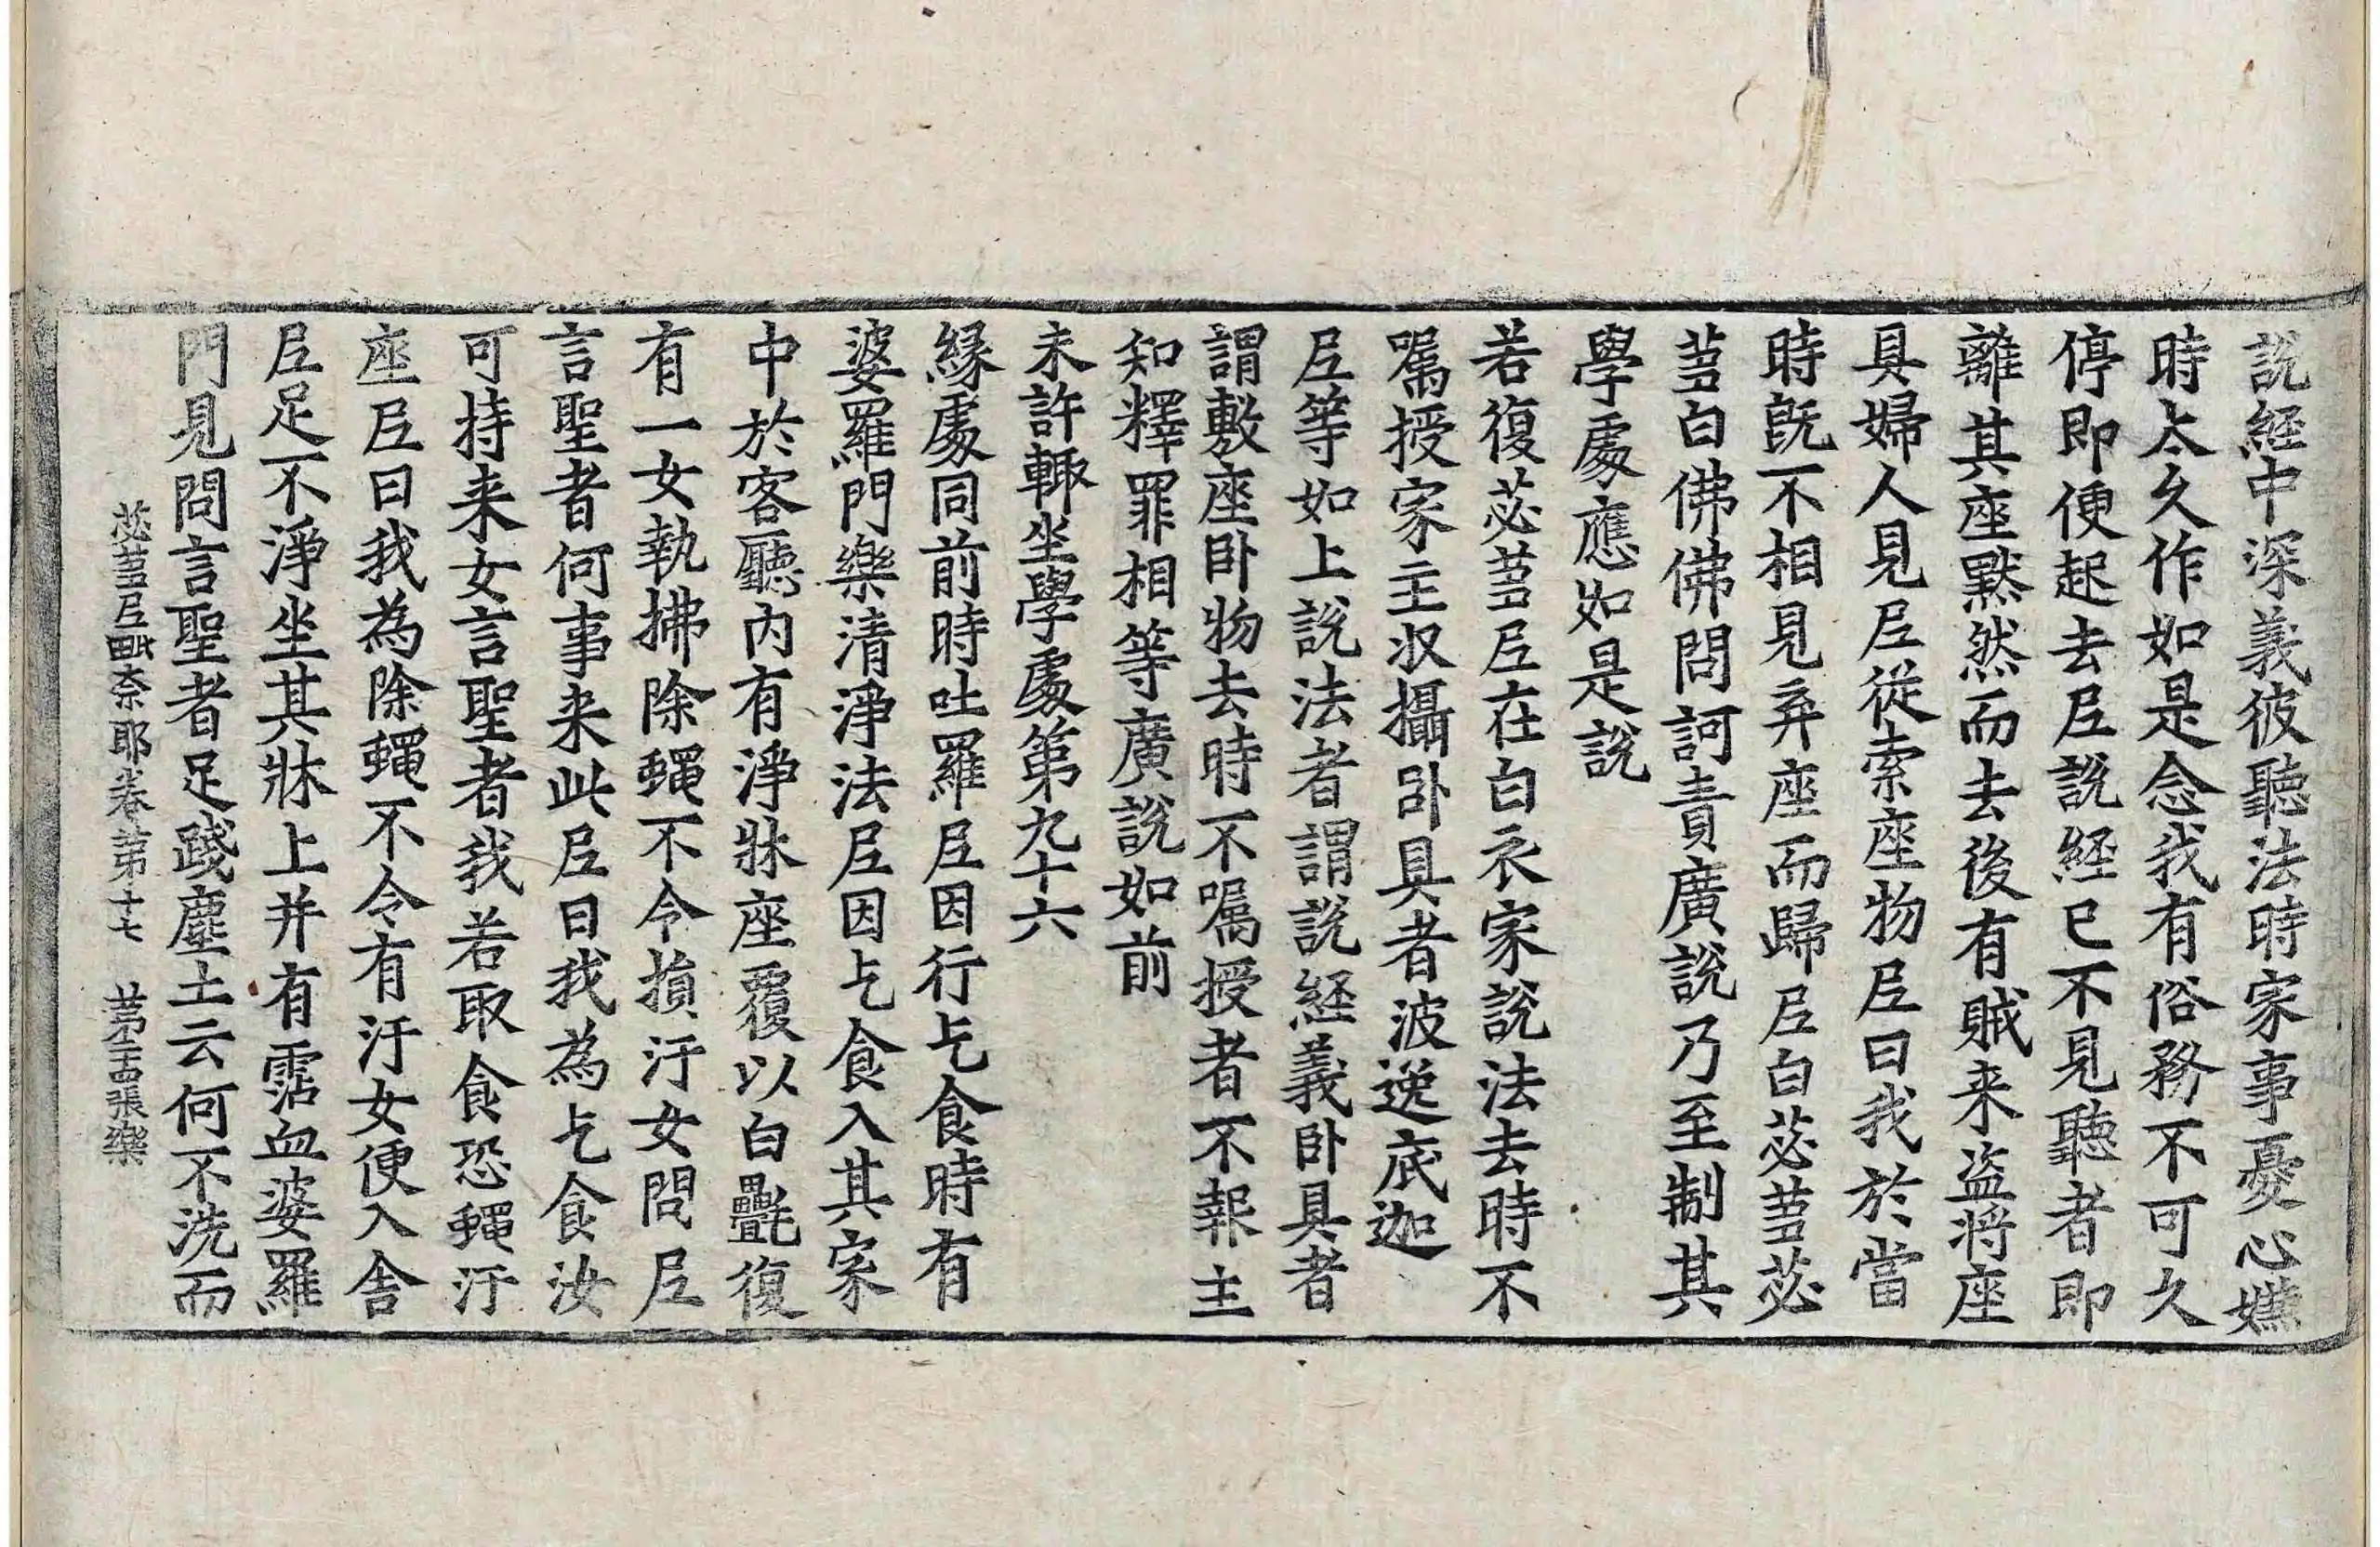 說經中深義彼聽法時家事憂心嫌
時太久作如是念我有俗務不可久
停即便起去尼說經已不見聽者即
離其座默然而去後有賊来盗將座
具婦人見尼從索座物尼曰我於當
時旣不相見弃座而歸尼白苾蒭苾
蒭白佛佛問訶責廣說乃至制其
學處應如是說
若復苾蒭尼在白衣家說法去時不
囑授家主収攝卧具者波逸底迦
尼等如上說法者謂說經義卧具者
謂敷座卧物去時不囑授者不報主
知釋罪相等廣說如前
未許輙坐學處第九十六
緣處同前時吐羅尼因行乞食時有
婆羅門樂清淨法尼因乞食入其家
中於客廳內有淨牀座覆以白㲲復
有一女執拂除蠅不令損汙女問尼
言聖者何事来此尼曰我為乞食汝
可持来女言聖者我若取食恐蠅汙
座尼曰我為除蠅不令有汙女便入舍
尼足不淨坐其牀上并有霑血婆羅
門見問言聖者足踐塵土云何不洗而
苾蒭尼毗奈耶卷第十七 張樂